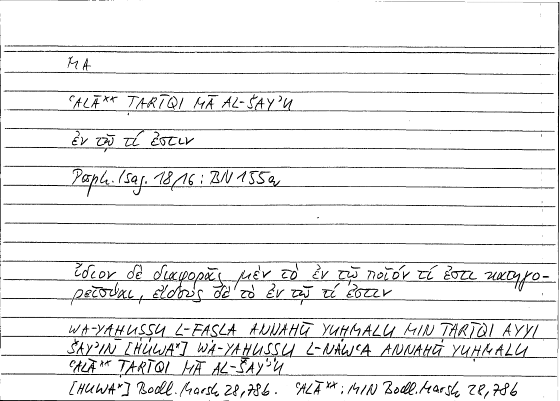 MA
ʿALĀ** ṬARĪQI MĀ AL-ŠAYʾU
ἐν τῷ τί ἐστιν
Porph. Isag. 18,16 : BN 155a
ἴδιον δὲ διαφορᾶς μὲν τὸ ἐν τῷ ποῖόν τί ἐστι κατηγο-
ρεῖσθαι, εἴδους δὲ τὸ ἐν τῷ τί ἐστιν
WA-YAḪUṢṢU L-FAṢLA ANNAHŪ YUḤMALU MIN ṬARĪQI AYYI
ŠAYʾIN [HUWA*] WA-YAḪUṢṢU L-NAWʿA ANNAHŪ YUḤMALU
ʿALĀ** ṬARĪQI MĀ AL-ŠAYʾU
[HUWA*] Bodl. Marsh 28,78b. ʿALĀ** : MIN Bodl. Marsh 28,78b